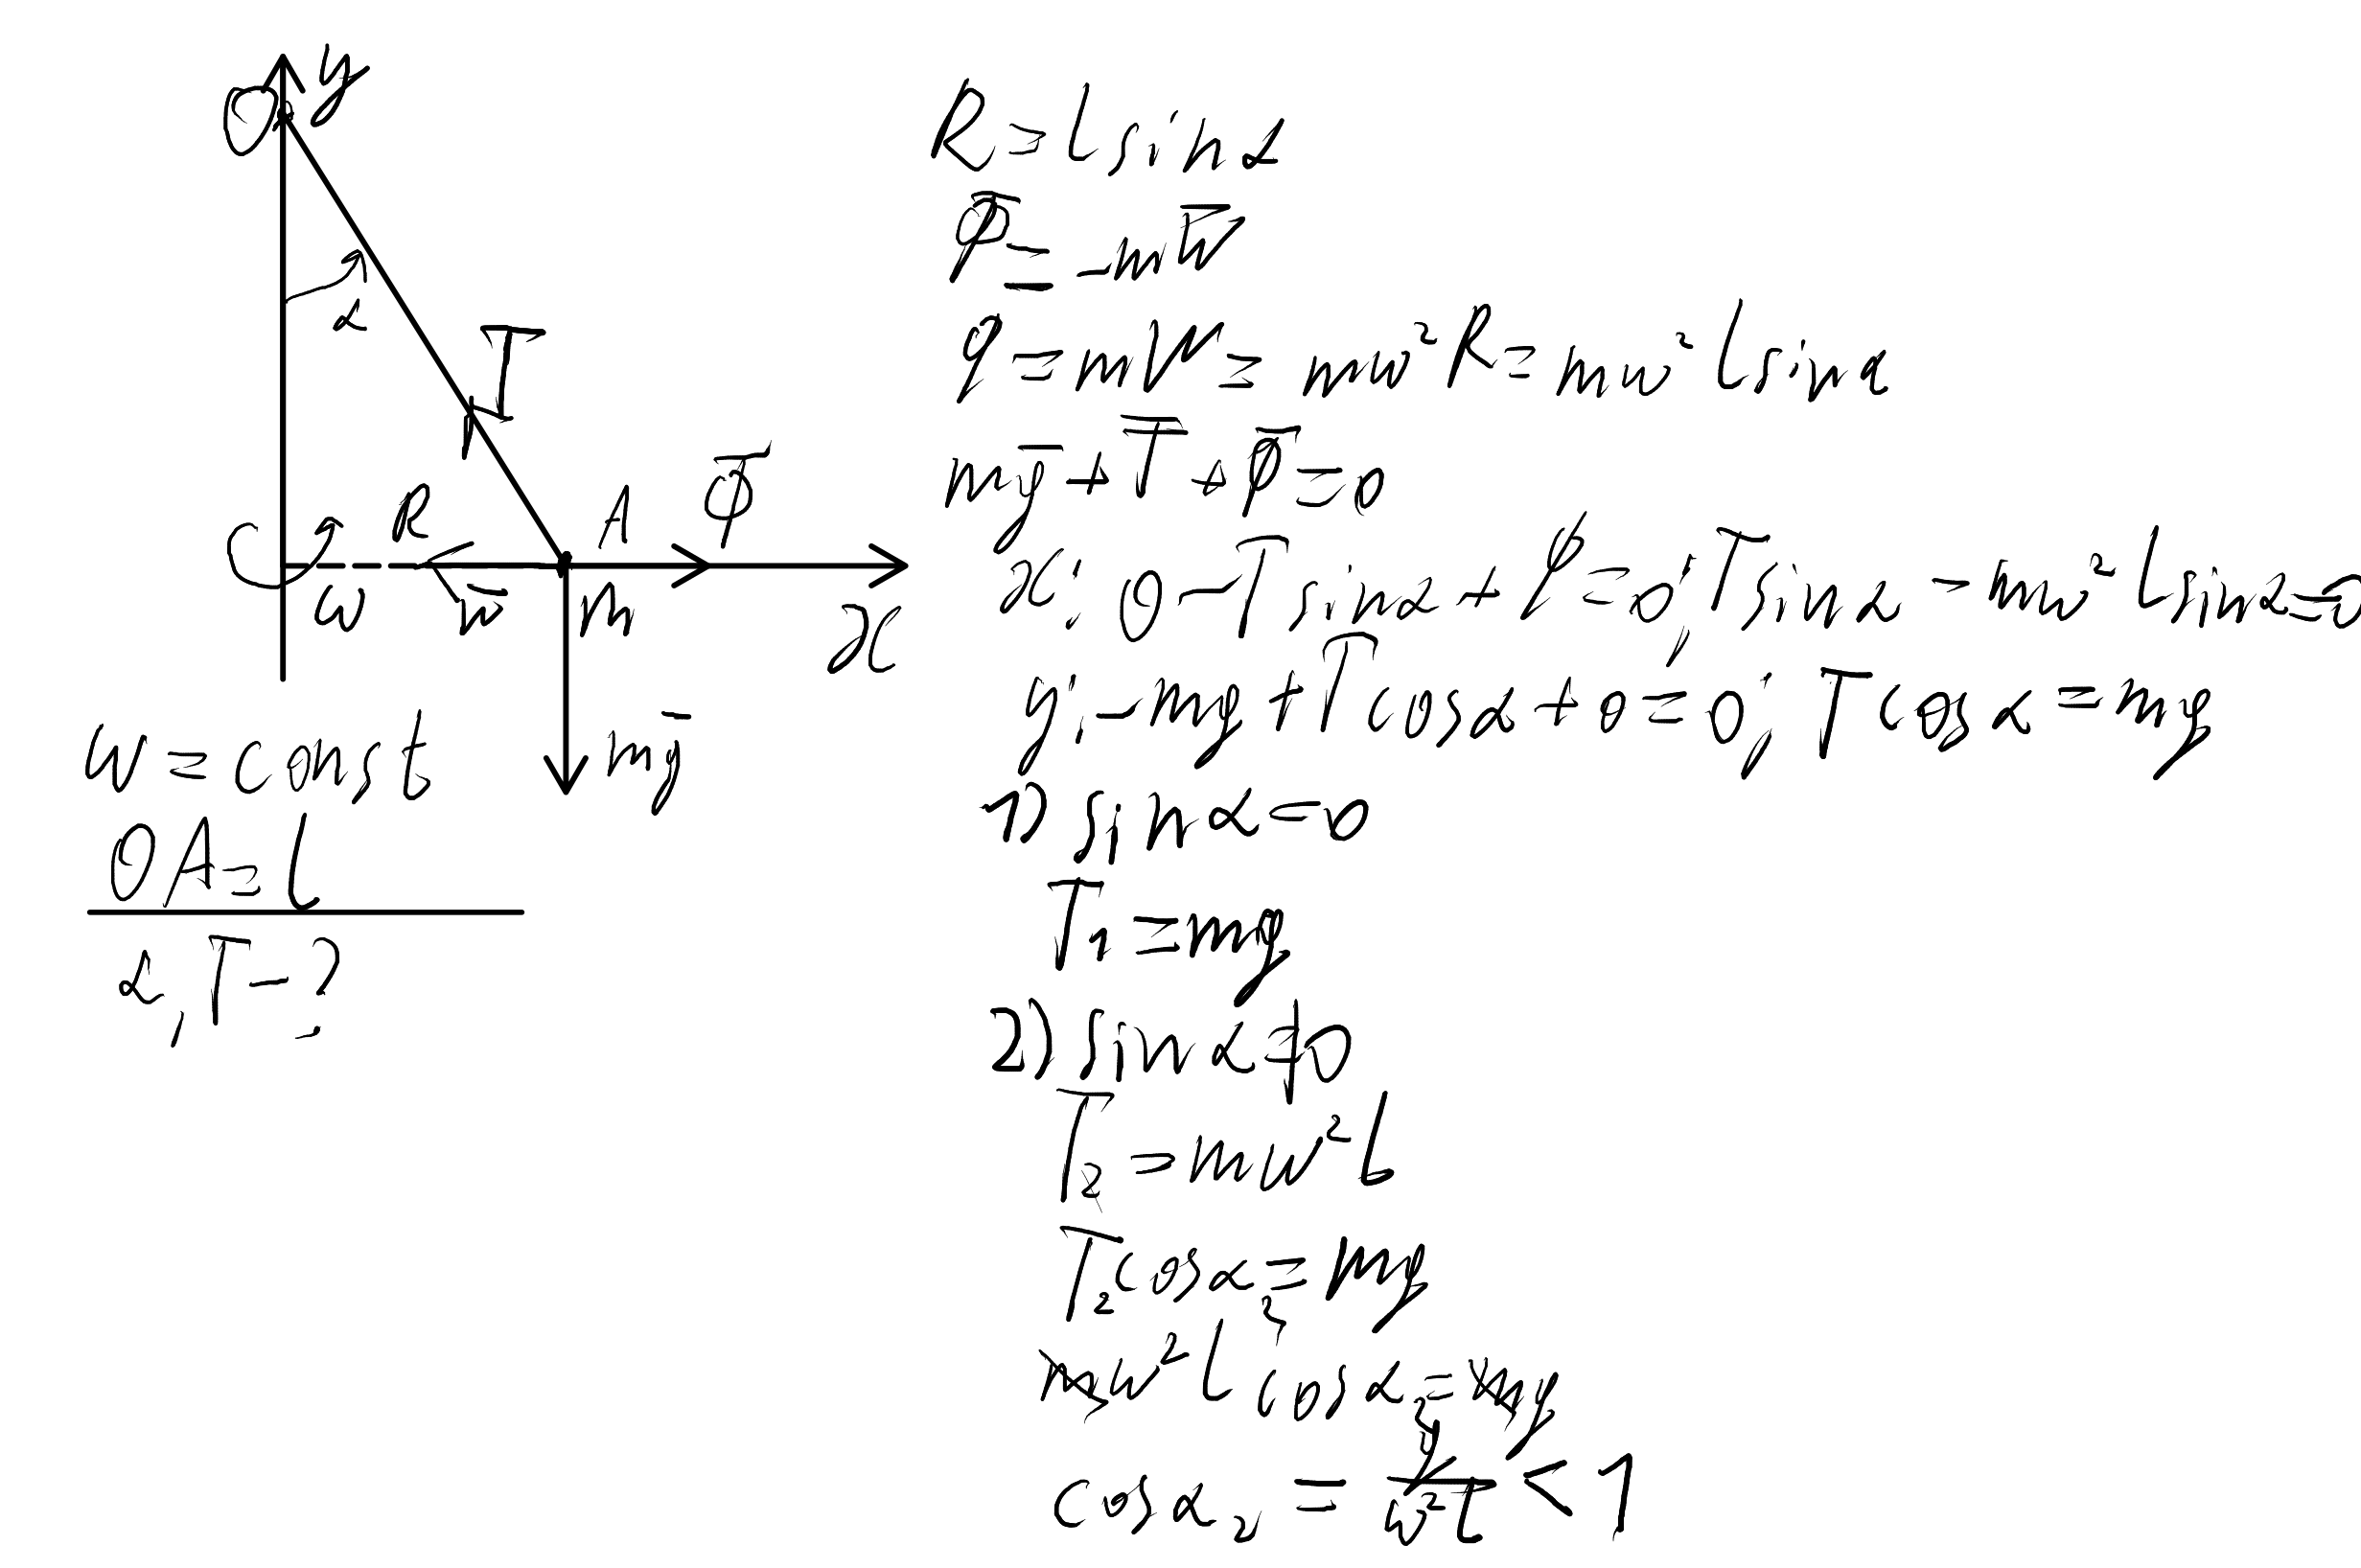 y
O
α
T̅
R
A
Φ̅
ω̂
w̅
m
x
mg̅
ω = const
OA = l
α, T - ?
R = l sin α
Φ̅ = -mw̅
Φ = mw = mω²R = mω² l sin α
mg̅ + T̅ + Φ̅ = 0
x: 0 - T sin α + Φ = 0; T sin α - mω² l sin α = 0
y: -mg + T cos α + 0 = 0; T cos α = mg
1) sin α = 0
T₁ = mg
2) sin α ≠ 0
T₂ = mω² l
T₂ cos α₂ = mg
mω² l cos α₂ = mg
cos α₂ = g/(ω² l) < 1